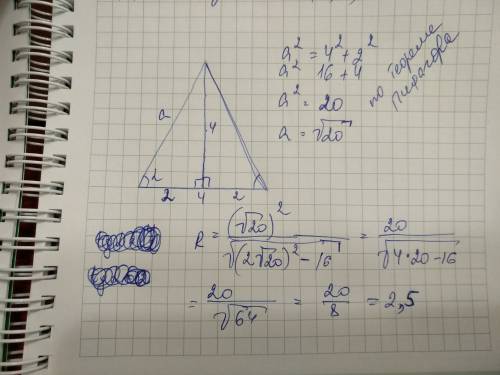 a² = 4² + 2²
a² 16 + 4
a² = 20
a = √20
по теореме
Пифагора
a
4
2
2 4 2
R = (√20)² / √((2√20)² - 16) = 20 / √(4·20-16)
= 20 / √64 = 20 / 8 = 2,5